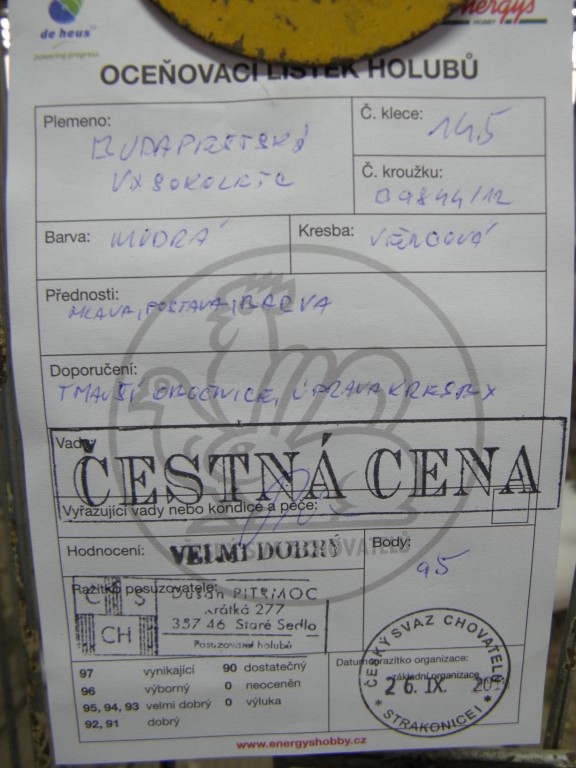 de heus
powering progress
energys
HOBBY
OCEŇOVACÍ LÍSTEK HOLUBŮ
Plemeno: BUDAPEŠTSKÝ
VYSOKOLETEC
Č. klece: 145
Č. kroužku:
B9844/12
Barva: MODRÁ
Kresba: VĚNCOVÁ
Přednosti:
HLAVA, POSTAVA, BARVA
Doporučení:
TMAVŠÍ OBOČNICE, ÚPRAVA KRESBY
Vady:
ČESTNÁ CENA
Vyřazující vady nebo kondice a péče:
Hodnocení: VELMI DOBRÝ
Body:
95
Razítko posuzovatele:
Č S
CH
Dušan PITRMOC
Krátká 277
357 46 Staré Sedlo
Posuzovatel holubů
97 vynikající
96 výborný
95, 94, 93 velmi dobrý
92, 91 dobrý
90 dostatečný
0 neoceněn
0 výluka
Datum a razítko organizace:
ČESKÝ SVAZ CHOVATELŮ
základní organizace
26. IX.
* STRAKONICE I *
www.energyshobby.cz